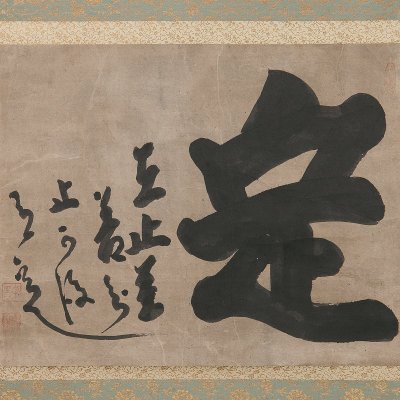 定
在止至
善知
止而後
有定